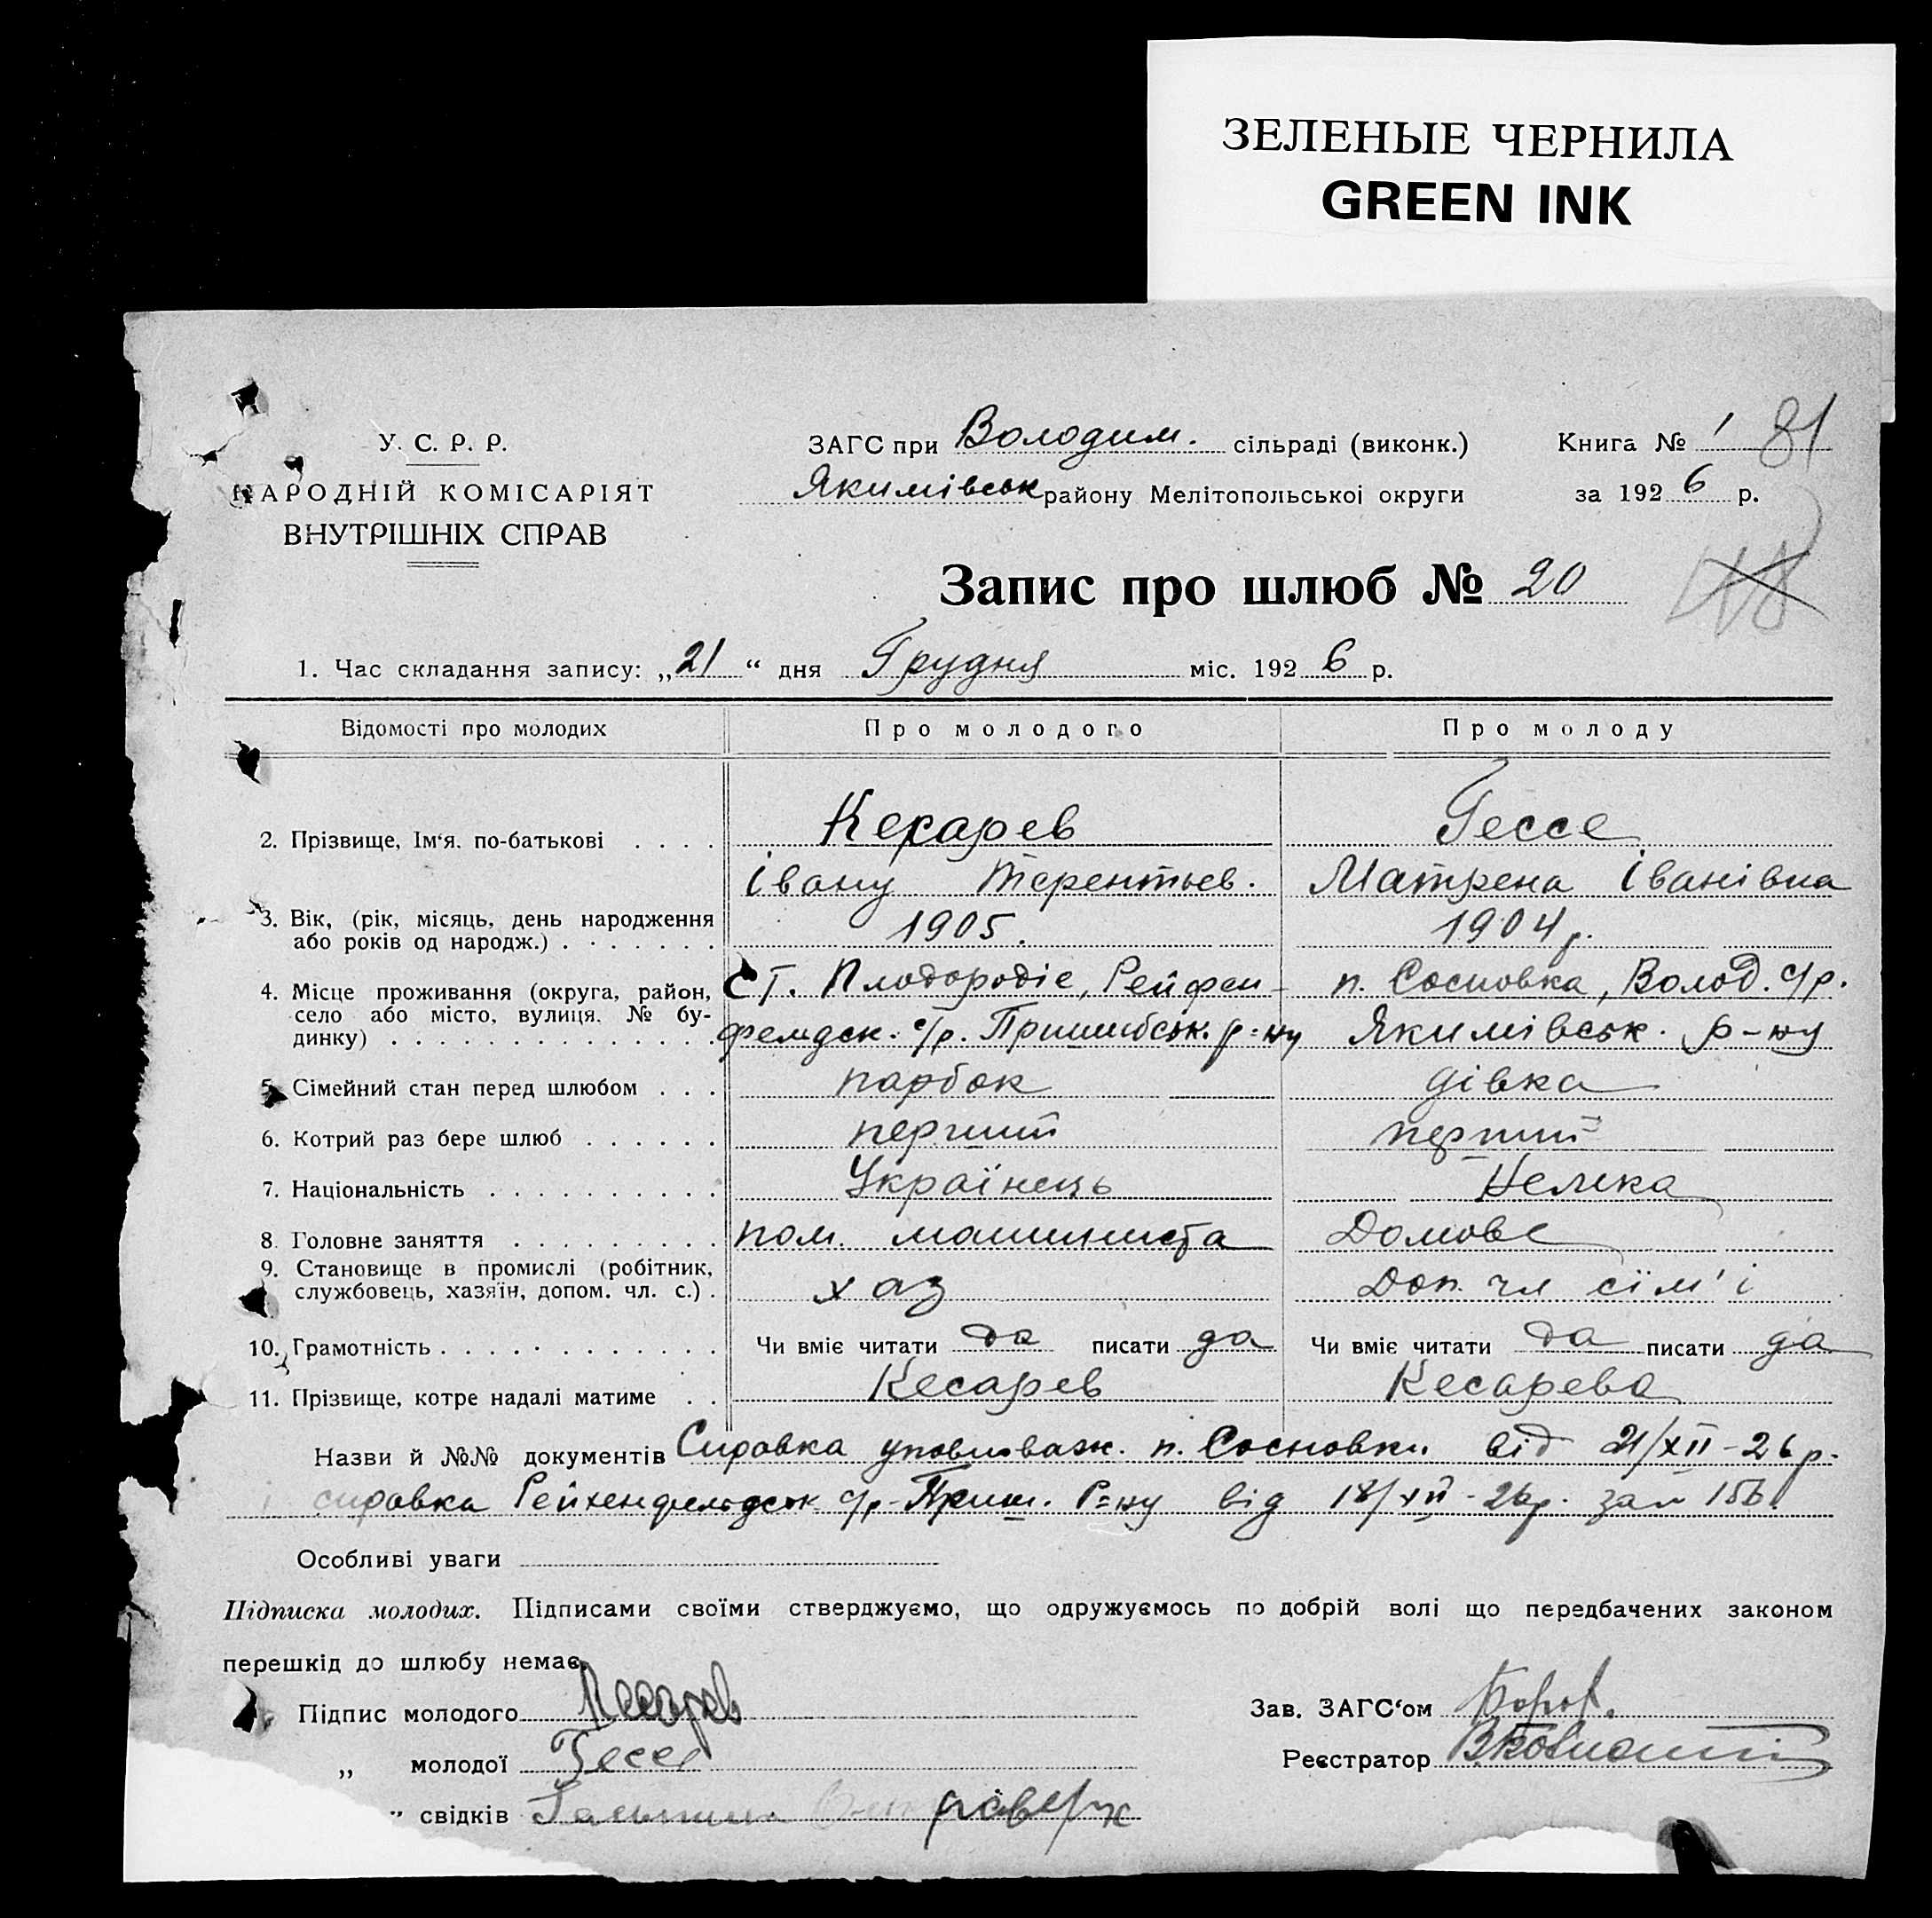 ЗЕЛЕНЫЕ ЧЕРНИЛА
GREEN INK
У. С. Р. Р.
НАРОДНІЙ КОМІСАРІЯТ
ВНУТРІШНІХ СПРАВ
ЗАГС при Володим. сільраді (виконк.)
Якимівськ району Мелітопольської округи
Книга № 1 81
за 1926 р.
Запис про шлюб № 20
1. Час складання запису: „21“ дня Грудня міс. 1926 р.
Відомості про молодих Про молодого Про молоду
2. Прізвище, Ім‘я, по-батькові . . . . Кекарев Гессе
Івану Терентьев. Матрена Іванівна
3. Вік, (рік, місяць, день народження
або років од народж.) . . . . . . . 1905. 1904 р.
4. Місце проживання (округа, район, ст. Плодородіе, Рейфен- п. Сосновка, Волод. с/р.
село або місто, вулиця, № бу-
динку) . . . . . . . . . . . . . . фельдск. с/р. Пришибськ. р-ну Якимівськ. р-ну
5. Сімейний стан перед шлюбом . . . парбок дівка
6. Котрий раз бере шлюб . . . . . . перший перший
7. Національність . . . . . . . . . . Українець Немка
8. Головне заняття . . . . . . . . . пом. машиниста Домове
9. Становище в промислі (робітник,
службовець, хазяїн, допом. чл. с.) . хаз Доп. чл сїм'і
10. Грамотність . . . . . . . . . . . . Чи вміє читати да писати да Чи вміє читати да писати да
11. Прізвище, котре надалі матиме . . Кесарев Кесарева
Назви й №№ документів Справка уповноваж. п. Сосновки від 21/XII-26 р.
і справка Рейхенфельдськ с/р-Приш. Р-ну від 18/XII-26р. за № 156.
Особливі уваги
Підписка молодих. Підписами своїми стверджуємо, що одружуємось по добрій волі що передбачених законом
перешкід до шлюбу немає.
Підпис молодого Кесарев
„ молодої Гессе
” свідків
Зав. ЗАГС‘ом
Реєстратор